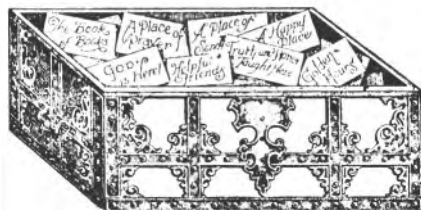 The Book
of Books
A Place of
Prayer
A Place of
A Happy
Place
God is
Here!
Helpful
Friends
Truth and
Taught Here
Golden